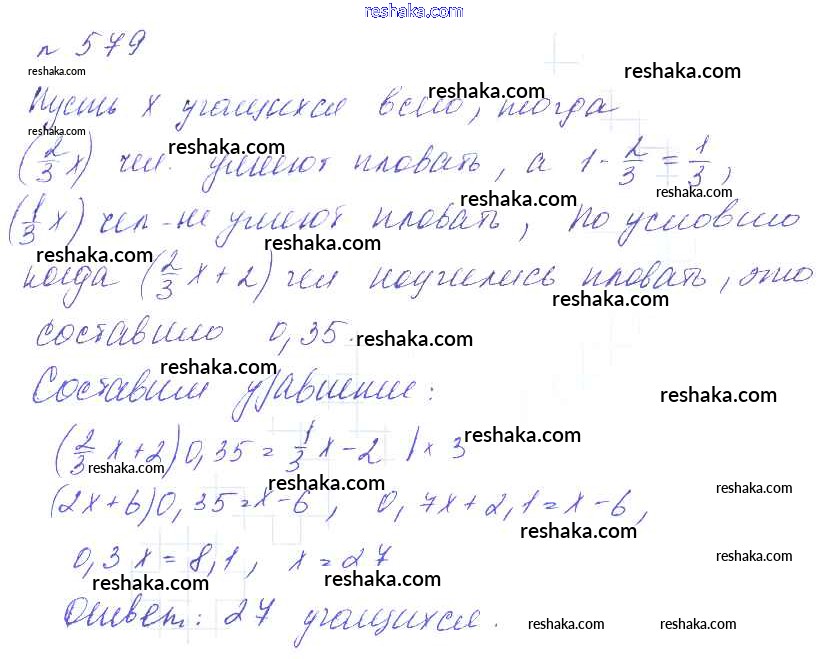 reshaka.com
№ 579
reshaka.com
reshaka.com
Пусть x учащихся всего, тогда
reshaka.com
reshaka.com
reshaka.com
(2/3 x) чел. умеют плавать, а 1 - 2/3 = 1/3,
reshaka.com
reshaka.com
(1/3 x) чел - не умеют плавать, По условию
reshaka.com
reshaka.com
когда (2/3 x + 2) чел научились плавать, это
reshaka.com
составило 0,35.
reshaka.com
reshaka.com
Составим уравнение:
reshaka.com
(2/3 x + 2) 0,35 = 1/3 x - 2 | × 3
reshaka.com
reshaka.com
reshaka.com
reshaka.com
(2x + 6) 0,35 = x - 6, 0,7x + 2,1 = x - 6,
reshaka.com
0,3 x = 8,1, x = 27
reshaka.com
reshaka.com
reshaka.com
Ответ: 27 учащихся.
reshaka.com
reshaka.com